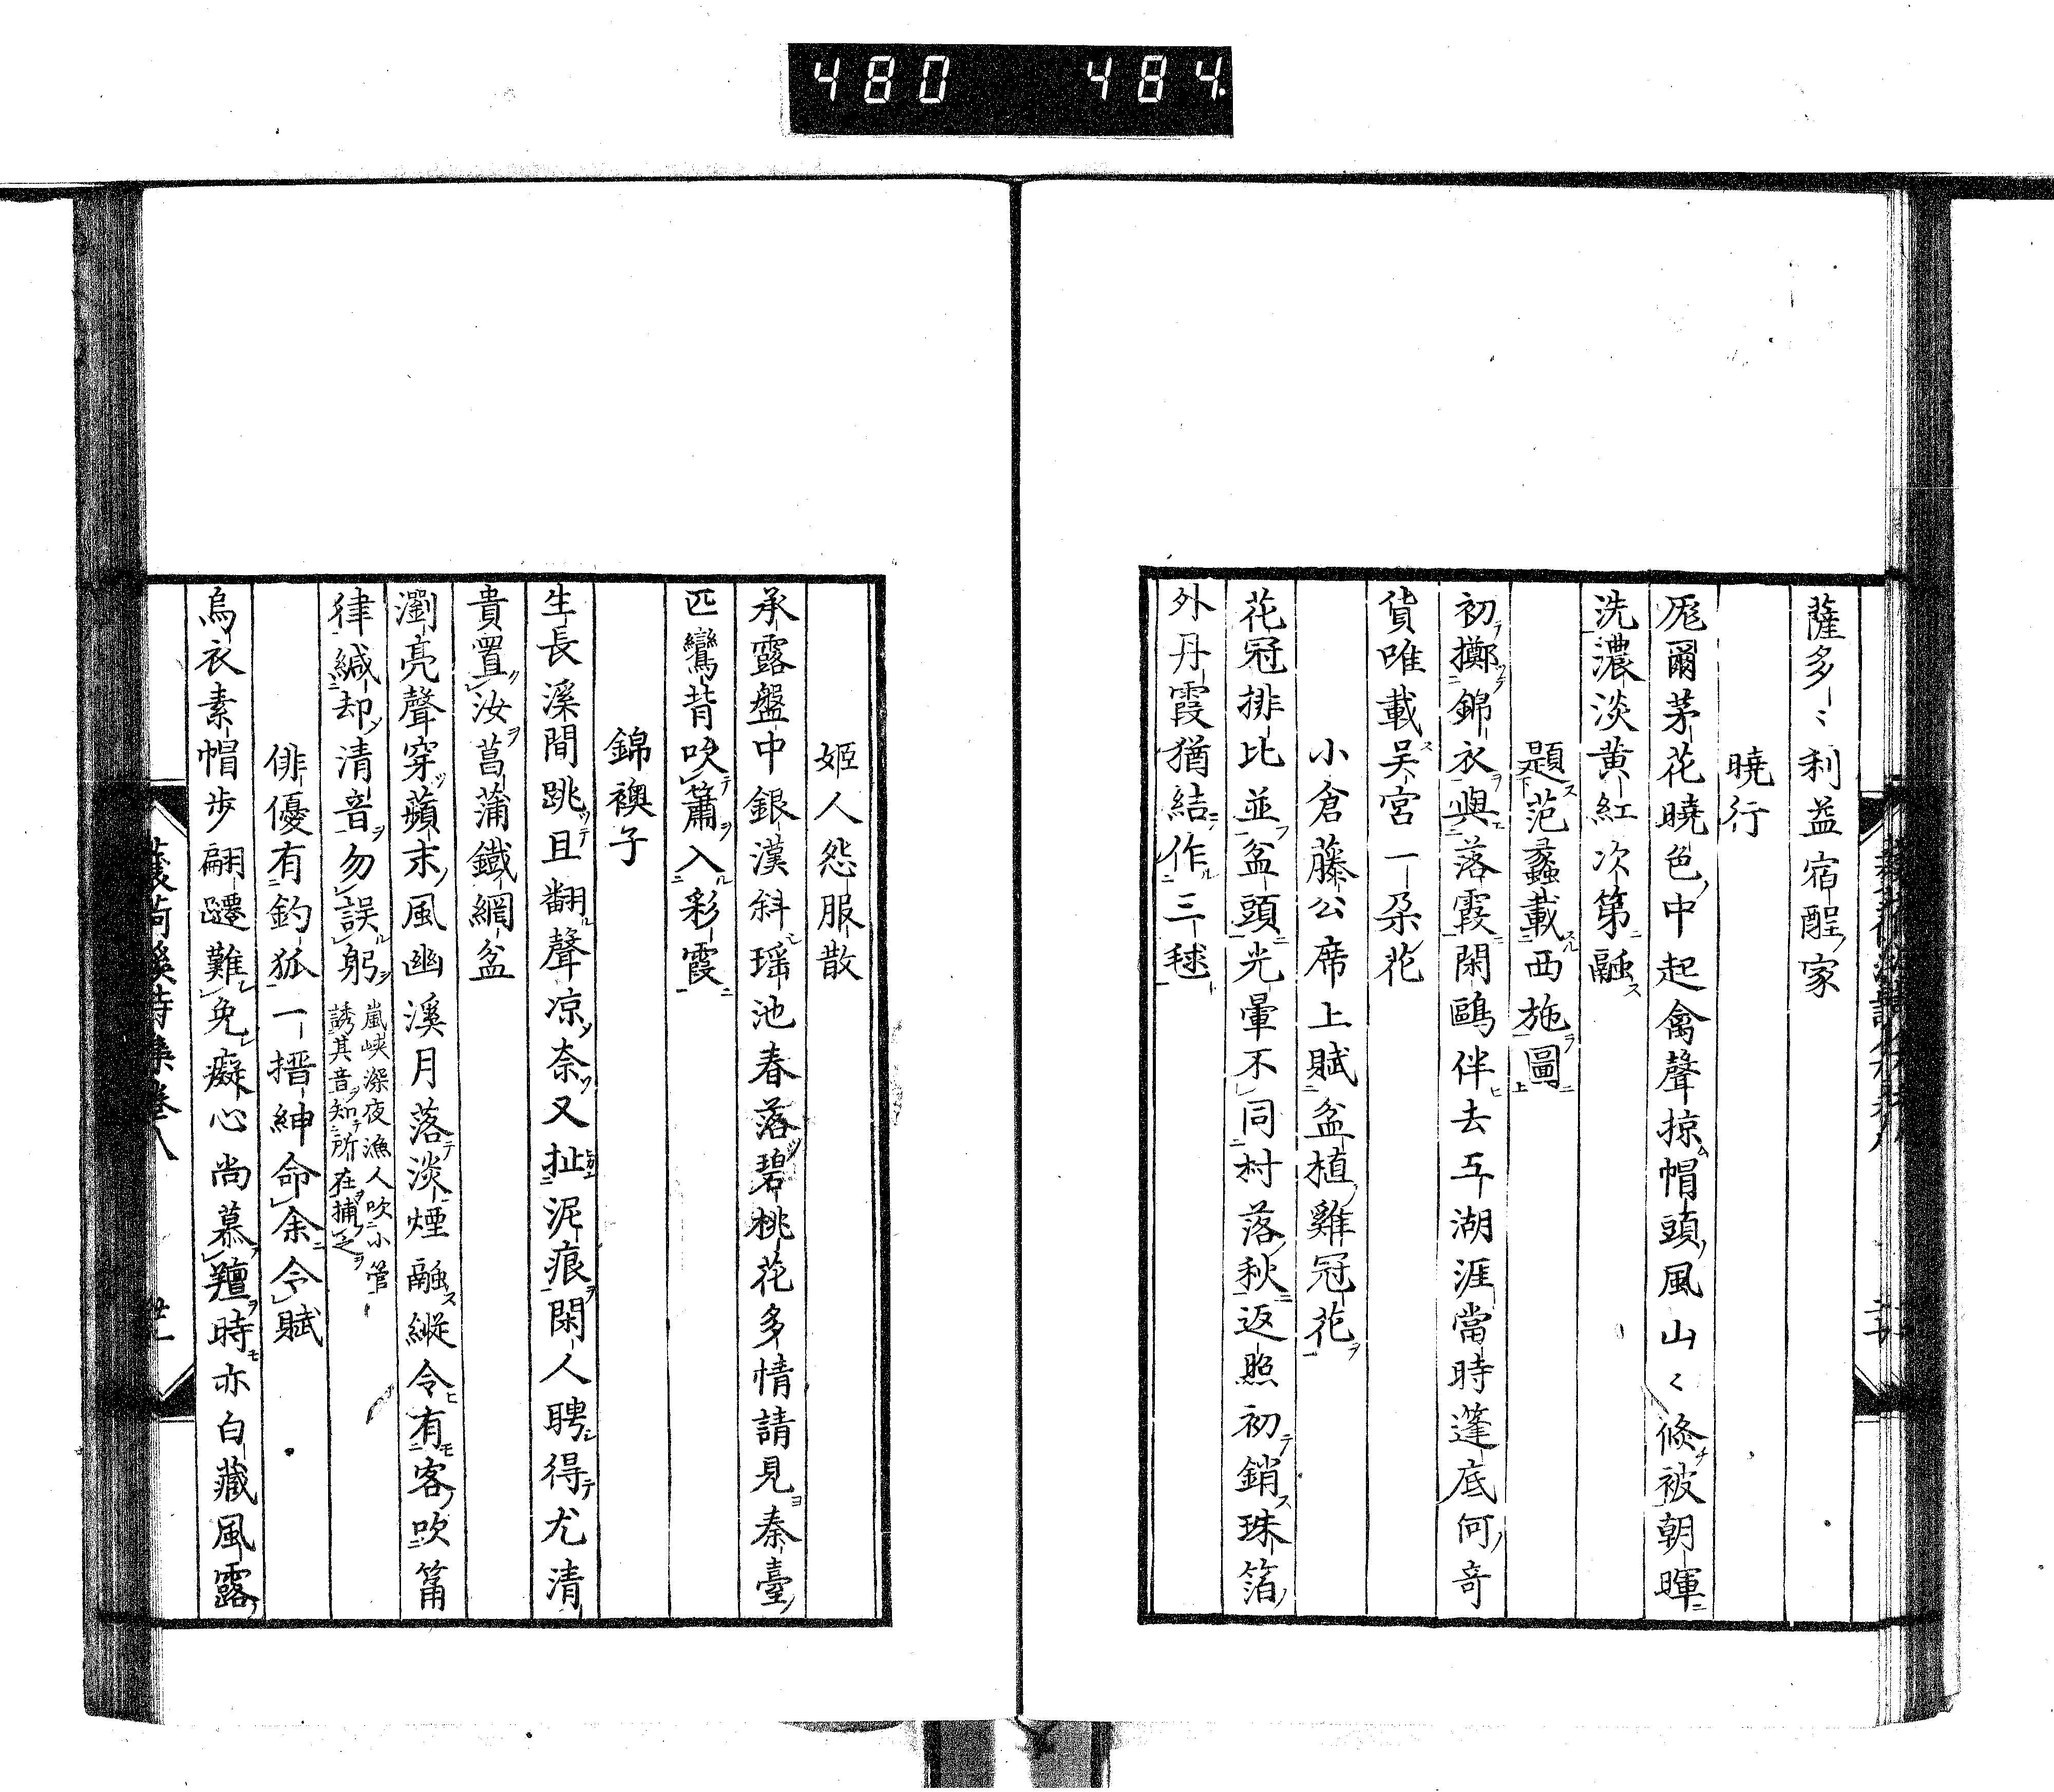 480 484.
薩多〻利益宿酲家
曉行
厖爾茅花曉色中起禽聲掠帽頭風山〻倏被朝暉
洗濃淡黄紅次第融
題范蠡載西施圖
初擲錦衣與落霞閑鷗伴去五湖涯當時蓬底何奇
貨唯載吴宮一朶花
小倉藤公席上賦盆植雞冠花
花冠排比並盆頭光暈不同村落秋返照初銷珠箔
外丹霞猶結作三毬
姬人怨服散
承露盤中銀漢斜瑶池春落碧桃花多情請見秦臺
匹鸞背吹簫入彩霞
錦襖子
生長溪間跳且翻聲凉奈又扯泥痕閑人聘得尤清
貴置汝菖蒲鐵網盆
瀏亮聲穿蘋末風幽溪月落淡煙融縱令有客吹箫
律緘却清音勿誤躬
嵐峡深夜漁人吹小管
誘其音知所在捕之
俳優有釣狐一搢紳命余令賦
烏衣素帽步翩躚難免癡心尚慕羶時亦白藏風露